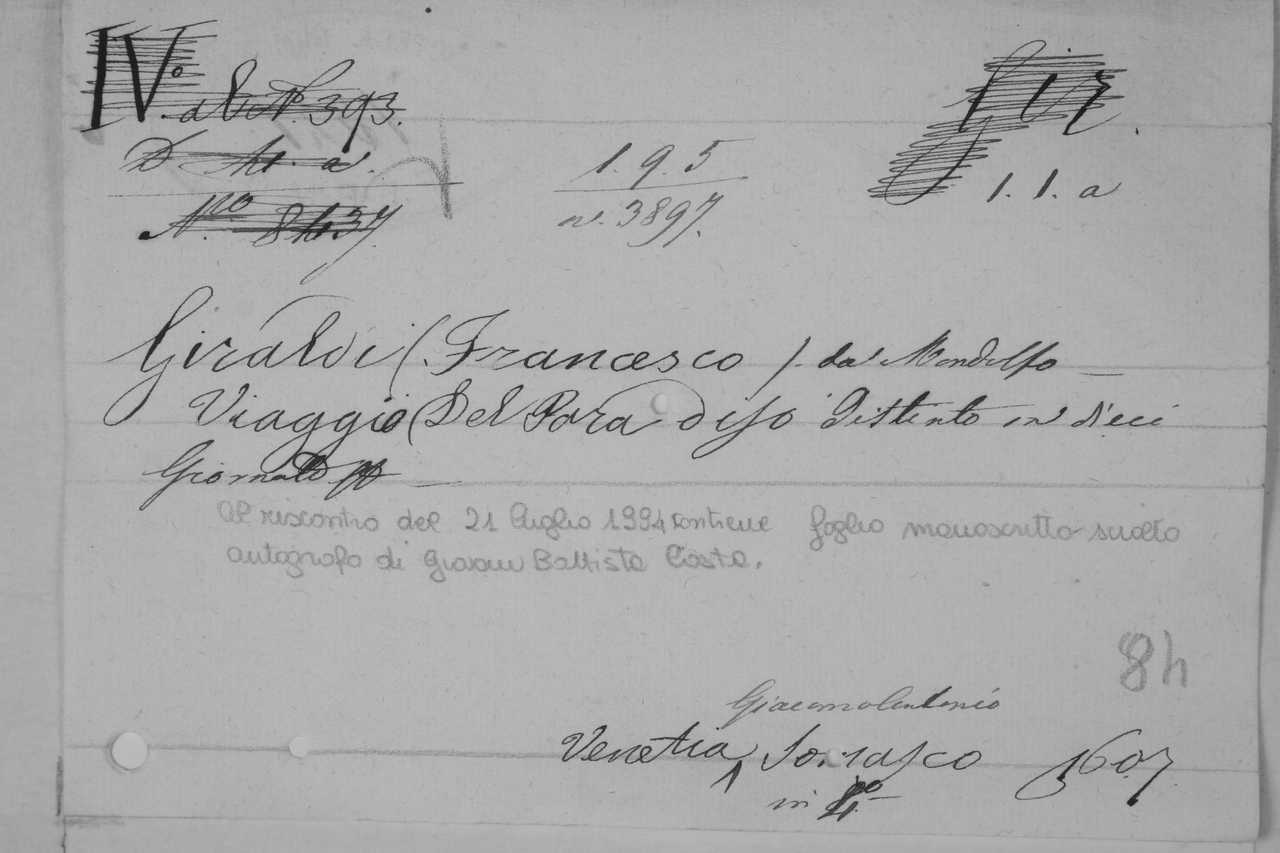 IV.º a l Nº. 393.
Gir.
D. 4. a.
1. 9. 5
1. 1. a
N.ro 8437
n. 3897.
Giraldi (Francesco). da Mondolfo
Viaggio (Del Paradiso Distinto in dieci
Giornate
Al riscontro del 21 luglio 1994 contiene foglio manoscritto sciolto
autografo di Giovanni Battista Costa.
84
Giacomo Antonio
Venetia, Somasco 1607
in 4º